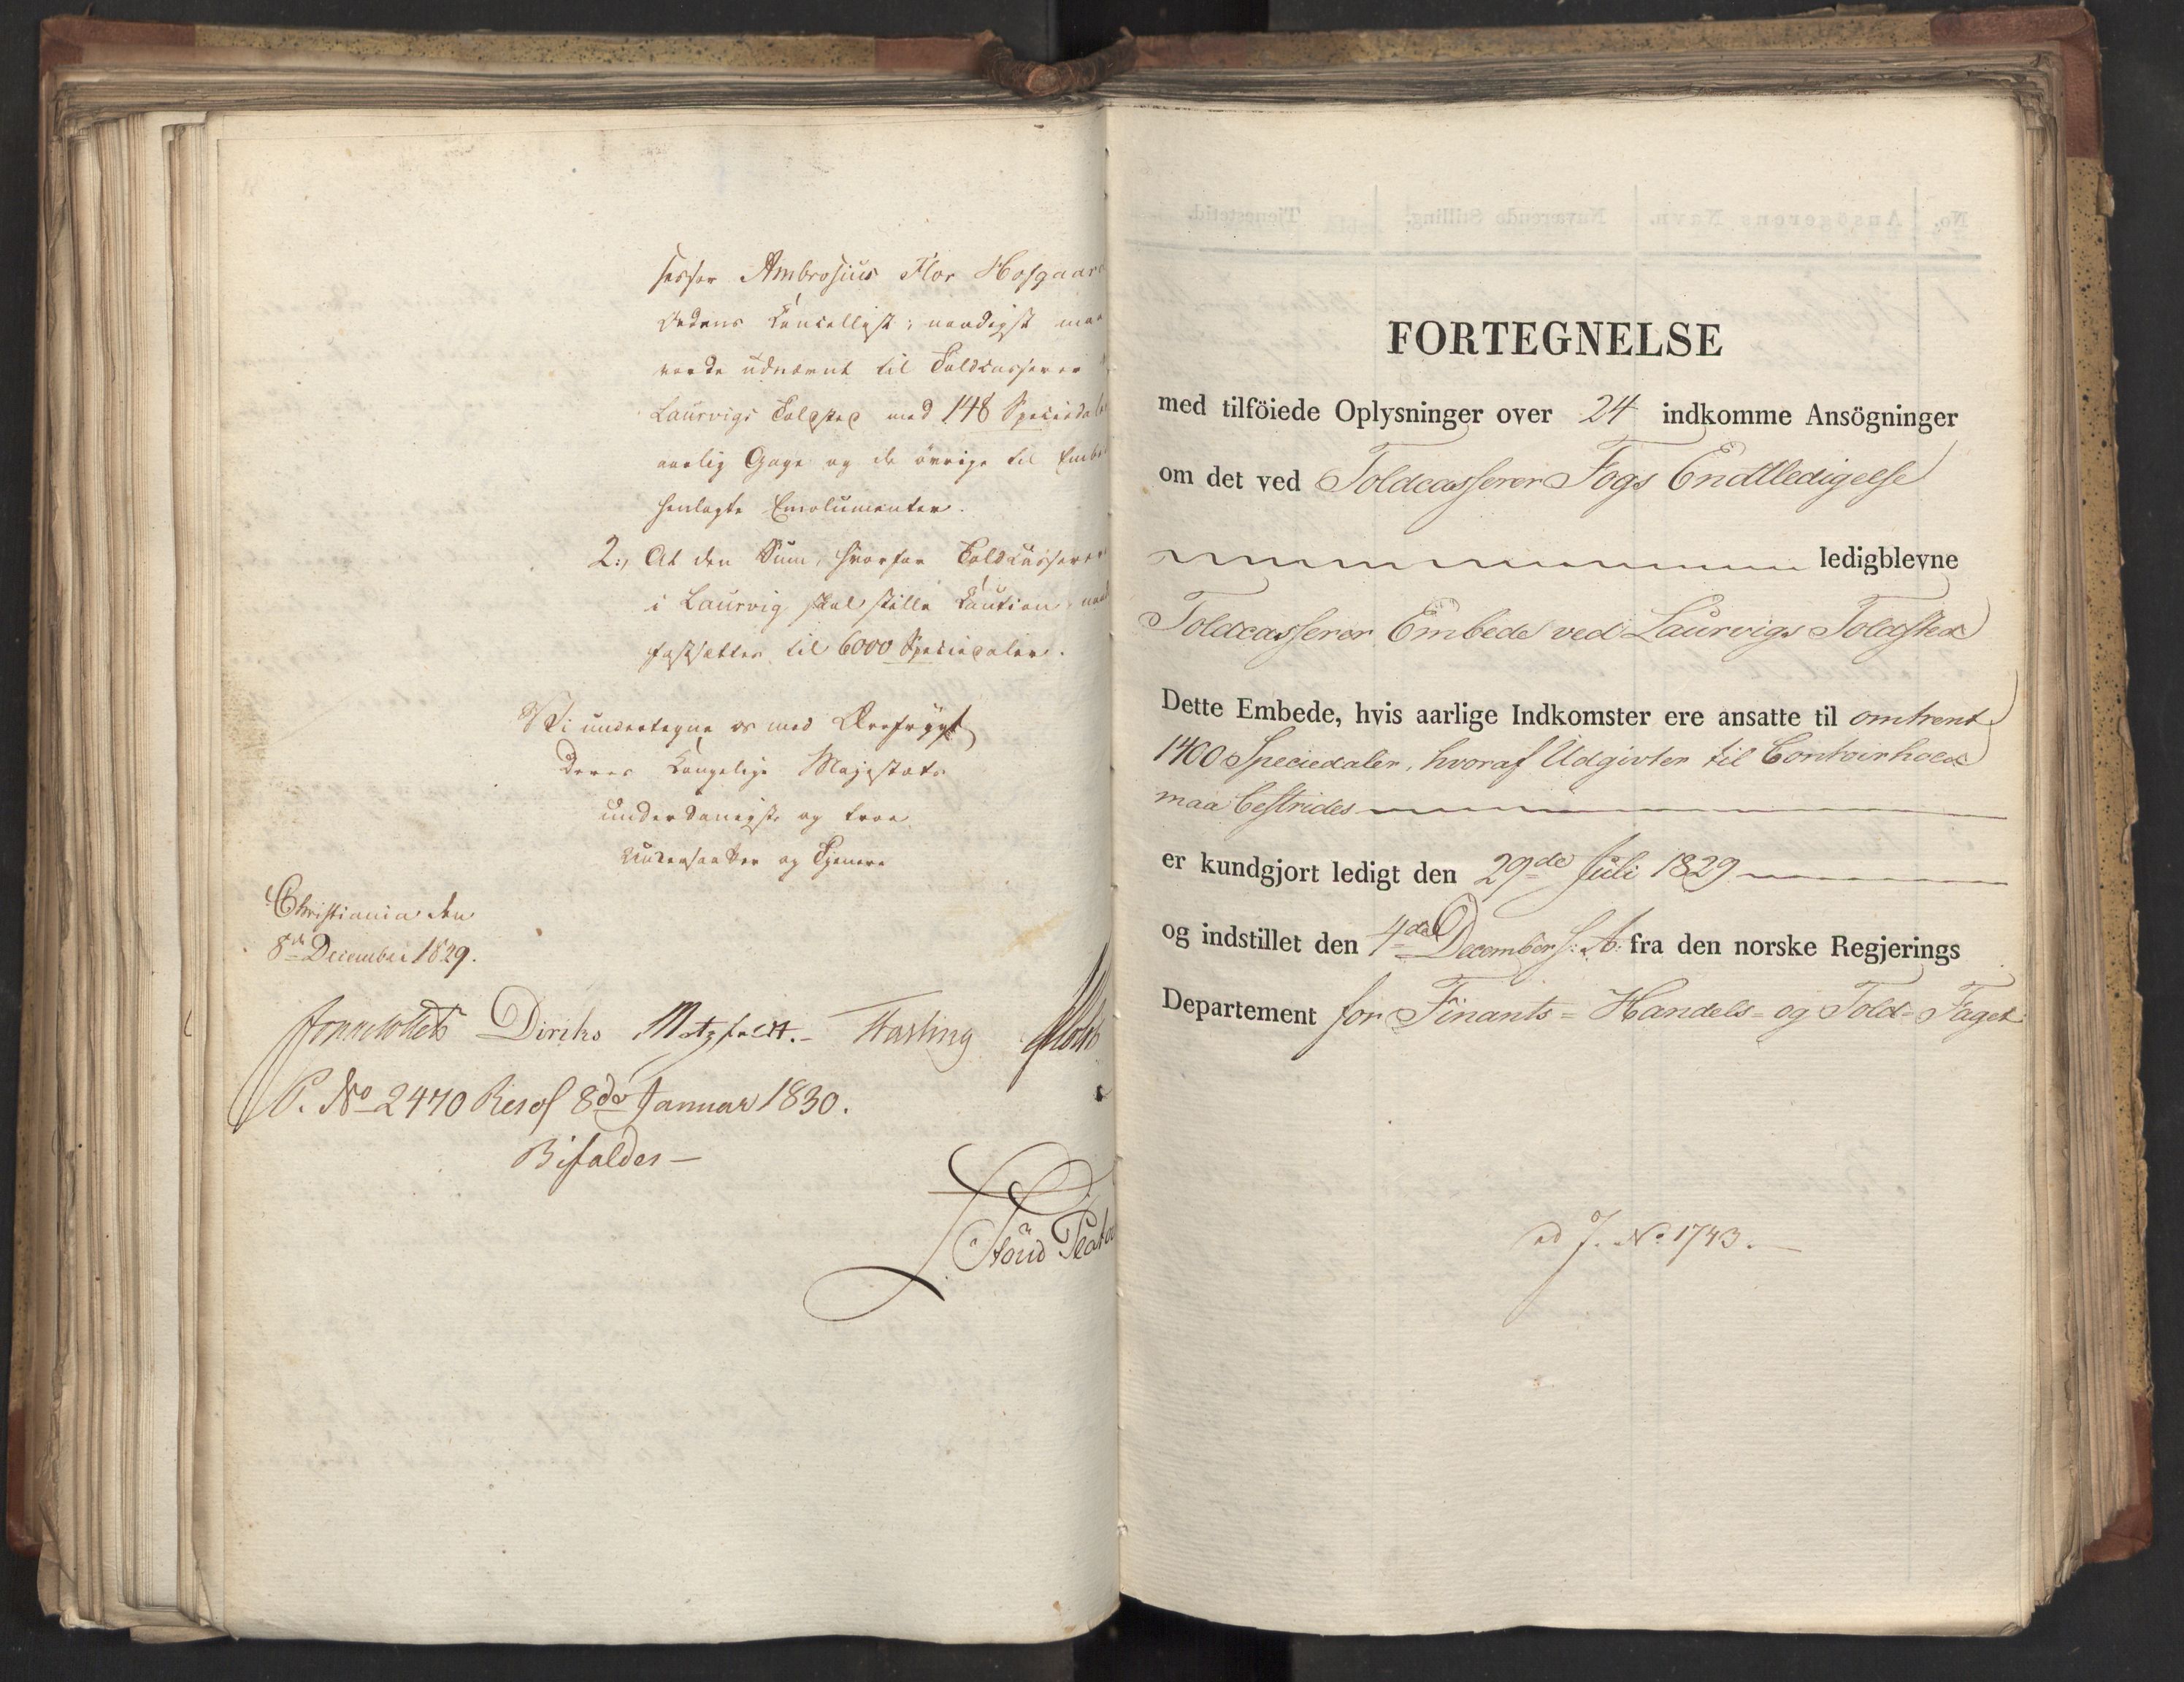 sesser Ambrosius Flor Hofgaar
Kancellist, naadigst maa
vorde udnævnt til Toldcasserer
Laurvigs Toldsted med 148 Speciedal
aarlig Gage og de øvrige til Embe
henlagte Emolumenter.
2:, At den Sum, hvorfor Toldcasserer
i Laurvig skal stille Caution, naad
fastsættes til 6000 Speciedaler.
Vi undertegne os med Ærefrygt
Deres Kongelige Majestæts
underdanigste og troe
Undersaatter og Tjenere
Christiania den
8de December 1829.
Diriks Motzfeldt. Fasting
P. No 2470 Resol 8de Januar 1830.
Bifaldes —
FORTEGNELSE
med tilföiede Oplysninger over 24 indkomme Ansögninger
om det ved Toldcasserer Fogs Endtledigelse
ledigblevne
Toldcasserer Embede ved Laurvigs Toldsted
Dette Embede, hvis aarlige Indkomster ere ansatte til omtrent
1400 Speciedaler, hvoraf Udgivter til Contoirhold
maa bestrides
er kundgjort ledigt den 29de Juli 1829
og indstillet den 4de December s: A: fra den norske Regjerings
Departement for Finants- Handels- og Told-Faget
ad J. No 1743.